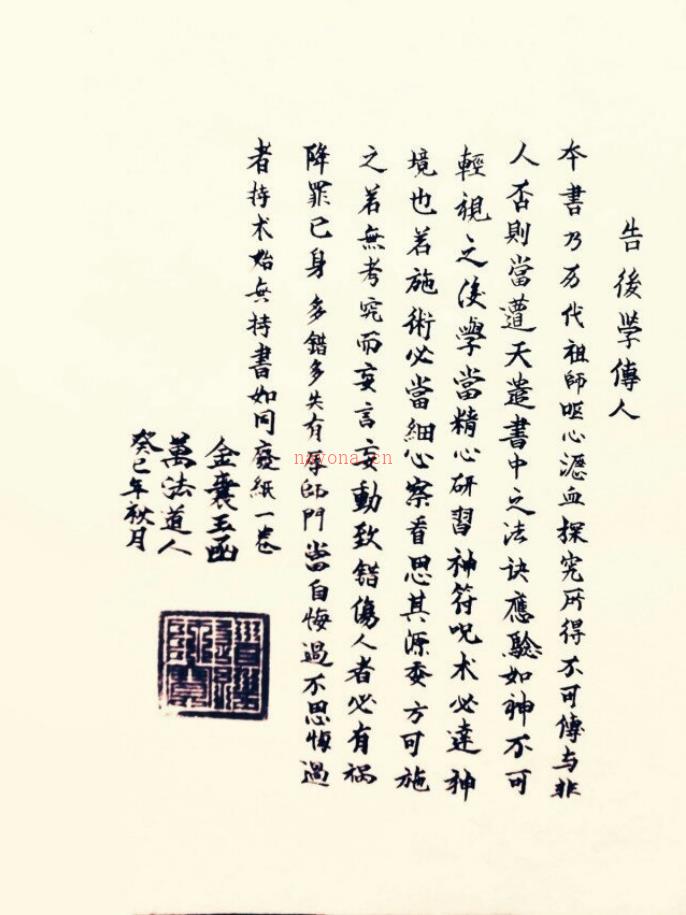 告後学傳人
本書乃历代祖師嘔心瀝血探究所得不可傳与非
人否則當遭天遣書中之法訣應驗如神不可
輕視之後學當精心研習神符咒术必達神
境也若施術必當細心察看思其源委方可施
之若無考究而妄言妄動致錯傷人者必有禍
降罪已身多錯多失有辱師門當自悔過不思悔過
者持术始無持書如同廢紙一卷
金囊玉函
萬法道人
癸巳年秋月
nayona.cn